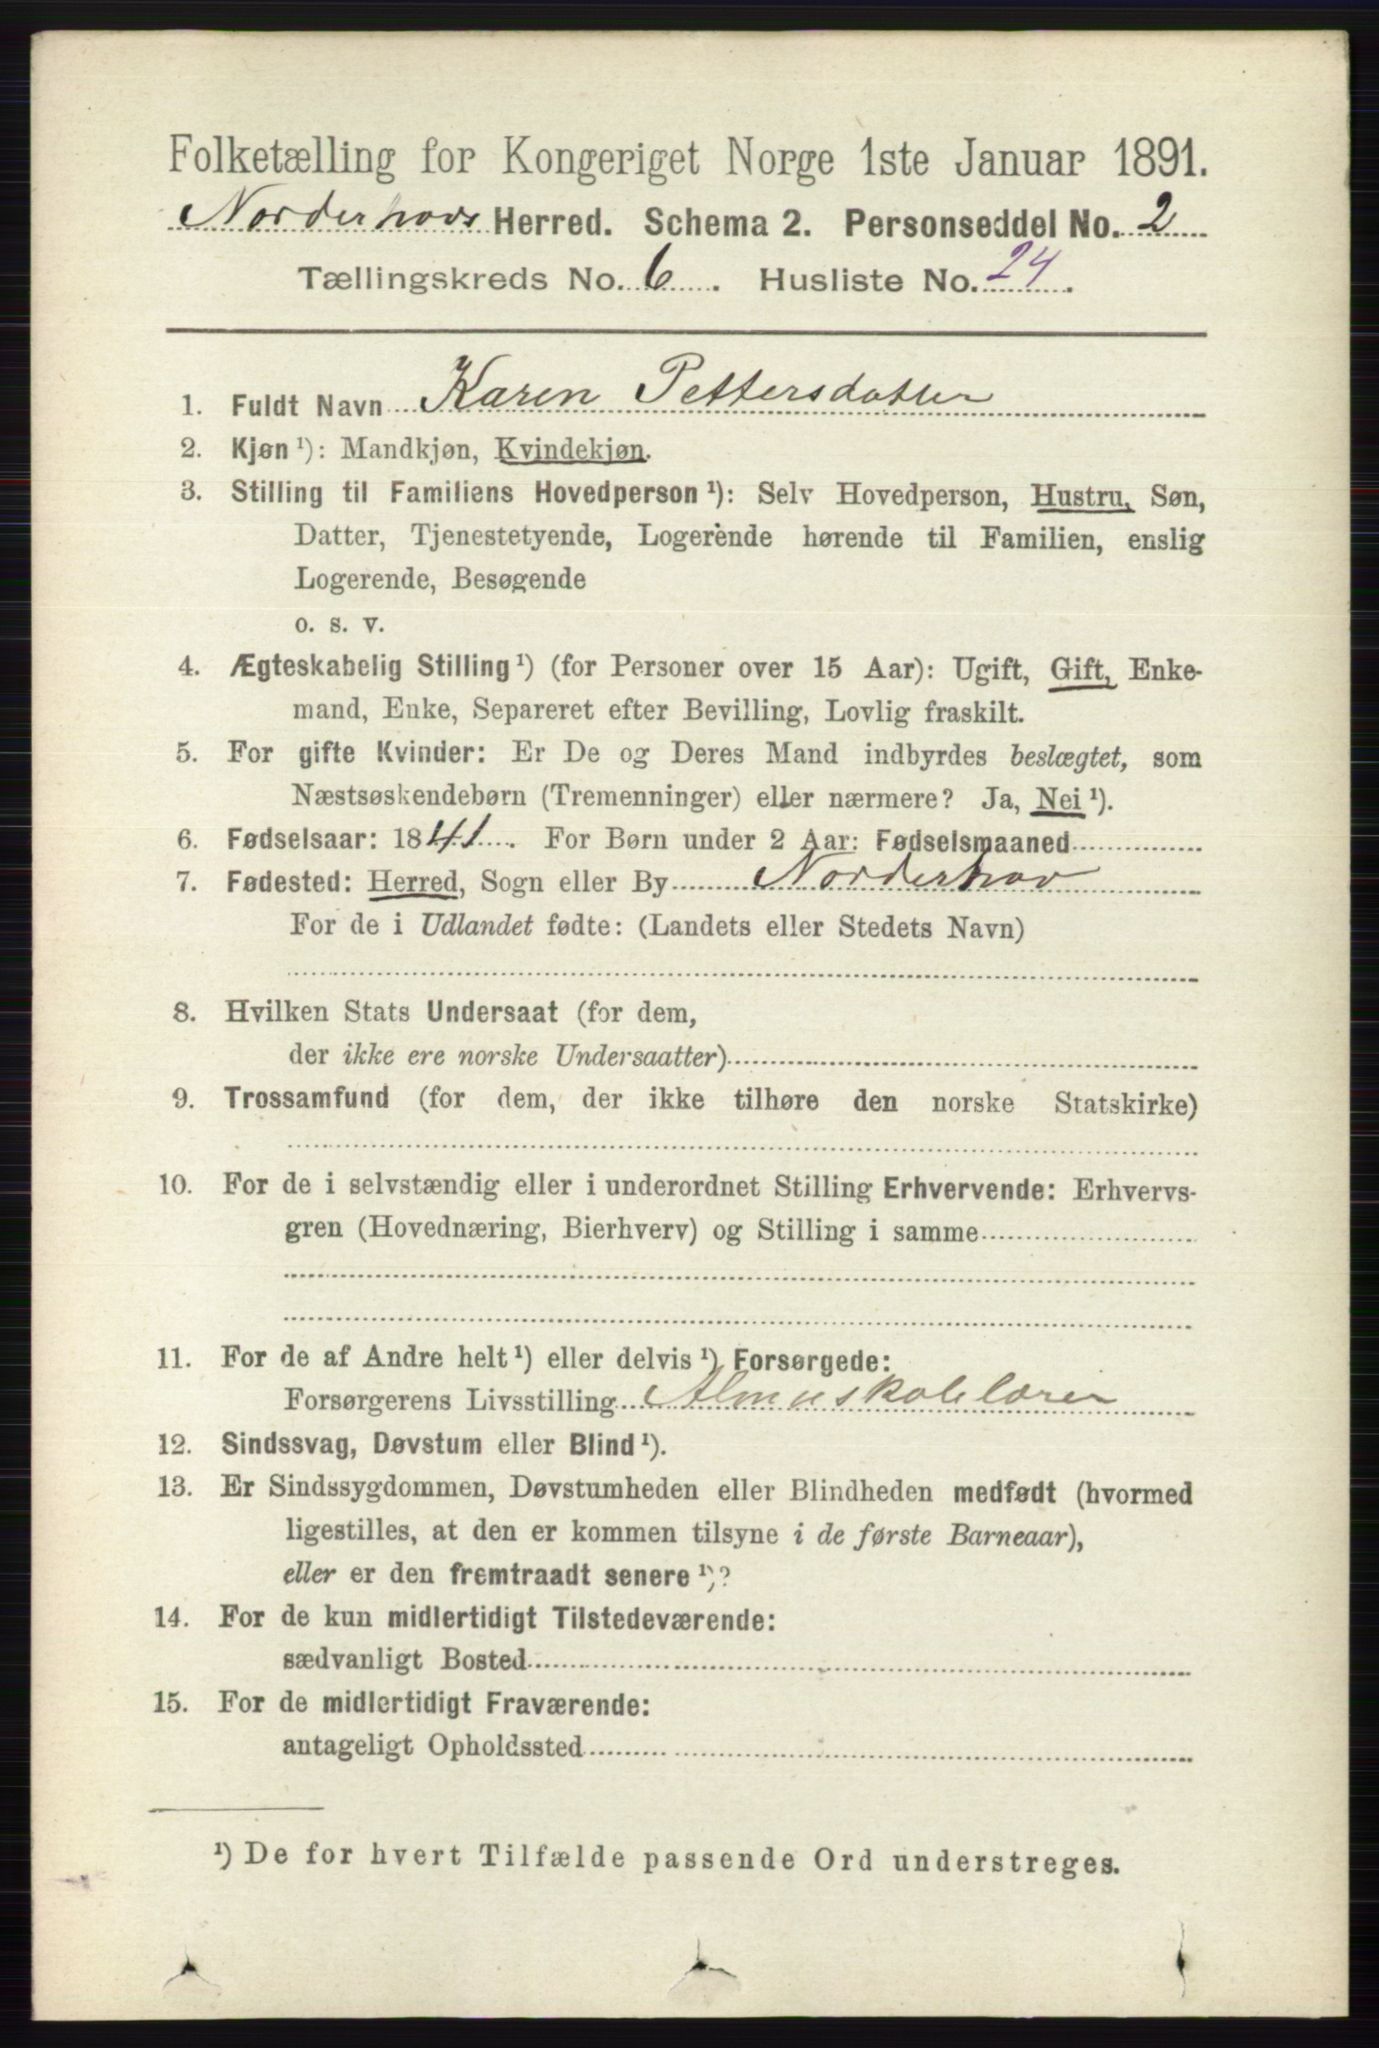 Folketælling for Kongeriget Norge 1ste Januar 1891.
Norderhovs Herred. Schema 2. Personseddel No. 2
Tællingskreds No. 6. Husliste No. 24.
1. Fuldt Navn Karen Pettersdatter
2. Kjøn ¹): Mandkjøn, Kvindekjøn.
3. Stilling til Familiens Hovedperson ¹): Selv Hovedperson, Hustru, Søn,
Datter, Tjenestetyende, Logerende hørende til Familien, enslig
Logerende, Besøgende
o. s. v.
4. Ægteskabelig Stilling ¹) (for Personer over 15 Aar): Ugift, Gift, Enke-
mand, Enke, Separeret efter Bevilling, Lovlig fraskilt.
5. For gifte Kvinder: Er De og Deres Mand indbyrdes beslægtet, som
Næstsøskendebørn (Tremenninger) eller nærmere? Ja, Nei ¹).
6. Fødselsaar: 1841. For Børn under 2 Aar: Fødselsmaaned
7. Fødested: Herred, Sogn eller By Norderhov
For de i Udlandet fødte: (Landets eller Stedets Navn)
8. Hvilken Stats Undersaat (for dem,
der ikke ere norske Undersaatter)
9. Trossamfund (for dem, der ikke tilhøre den norske Statskirke)
10. For de i selvstændig eller i underordnet Stilling Erhvervende: Erhvervs-
gren (Hovednæring, Bierhverv) og Stilling i samme
11. For de af Andre helt ¹) eller delvis ¹) Forsørgede:
Forsørgerens Livsstilling Almueskolelærer
12. Sindssvag, Døvstum eller Blind ¹).
13. Er Sindssygdommen, Døvstumheden eller Blindheden medfødt (hvormed
ligestilles, at den er kommen tilsyne i de første Barneaar),
eller er den fremtraadt senere ¹)?
14. For de kun midlertidigt Tilstedeværende:
sædvanligt Bosted
15. For de midlertidigt Fraværende:
antageligt Opholdssted
¹) De for hvert Tilfælde passende Ord understreges.